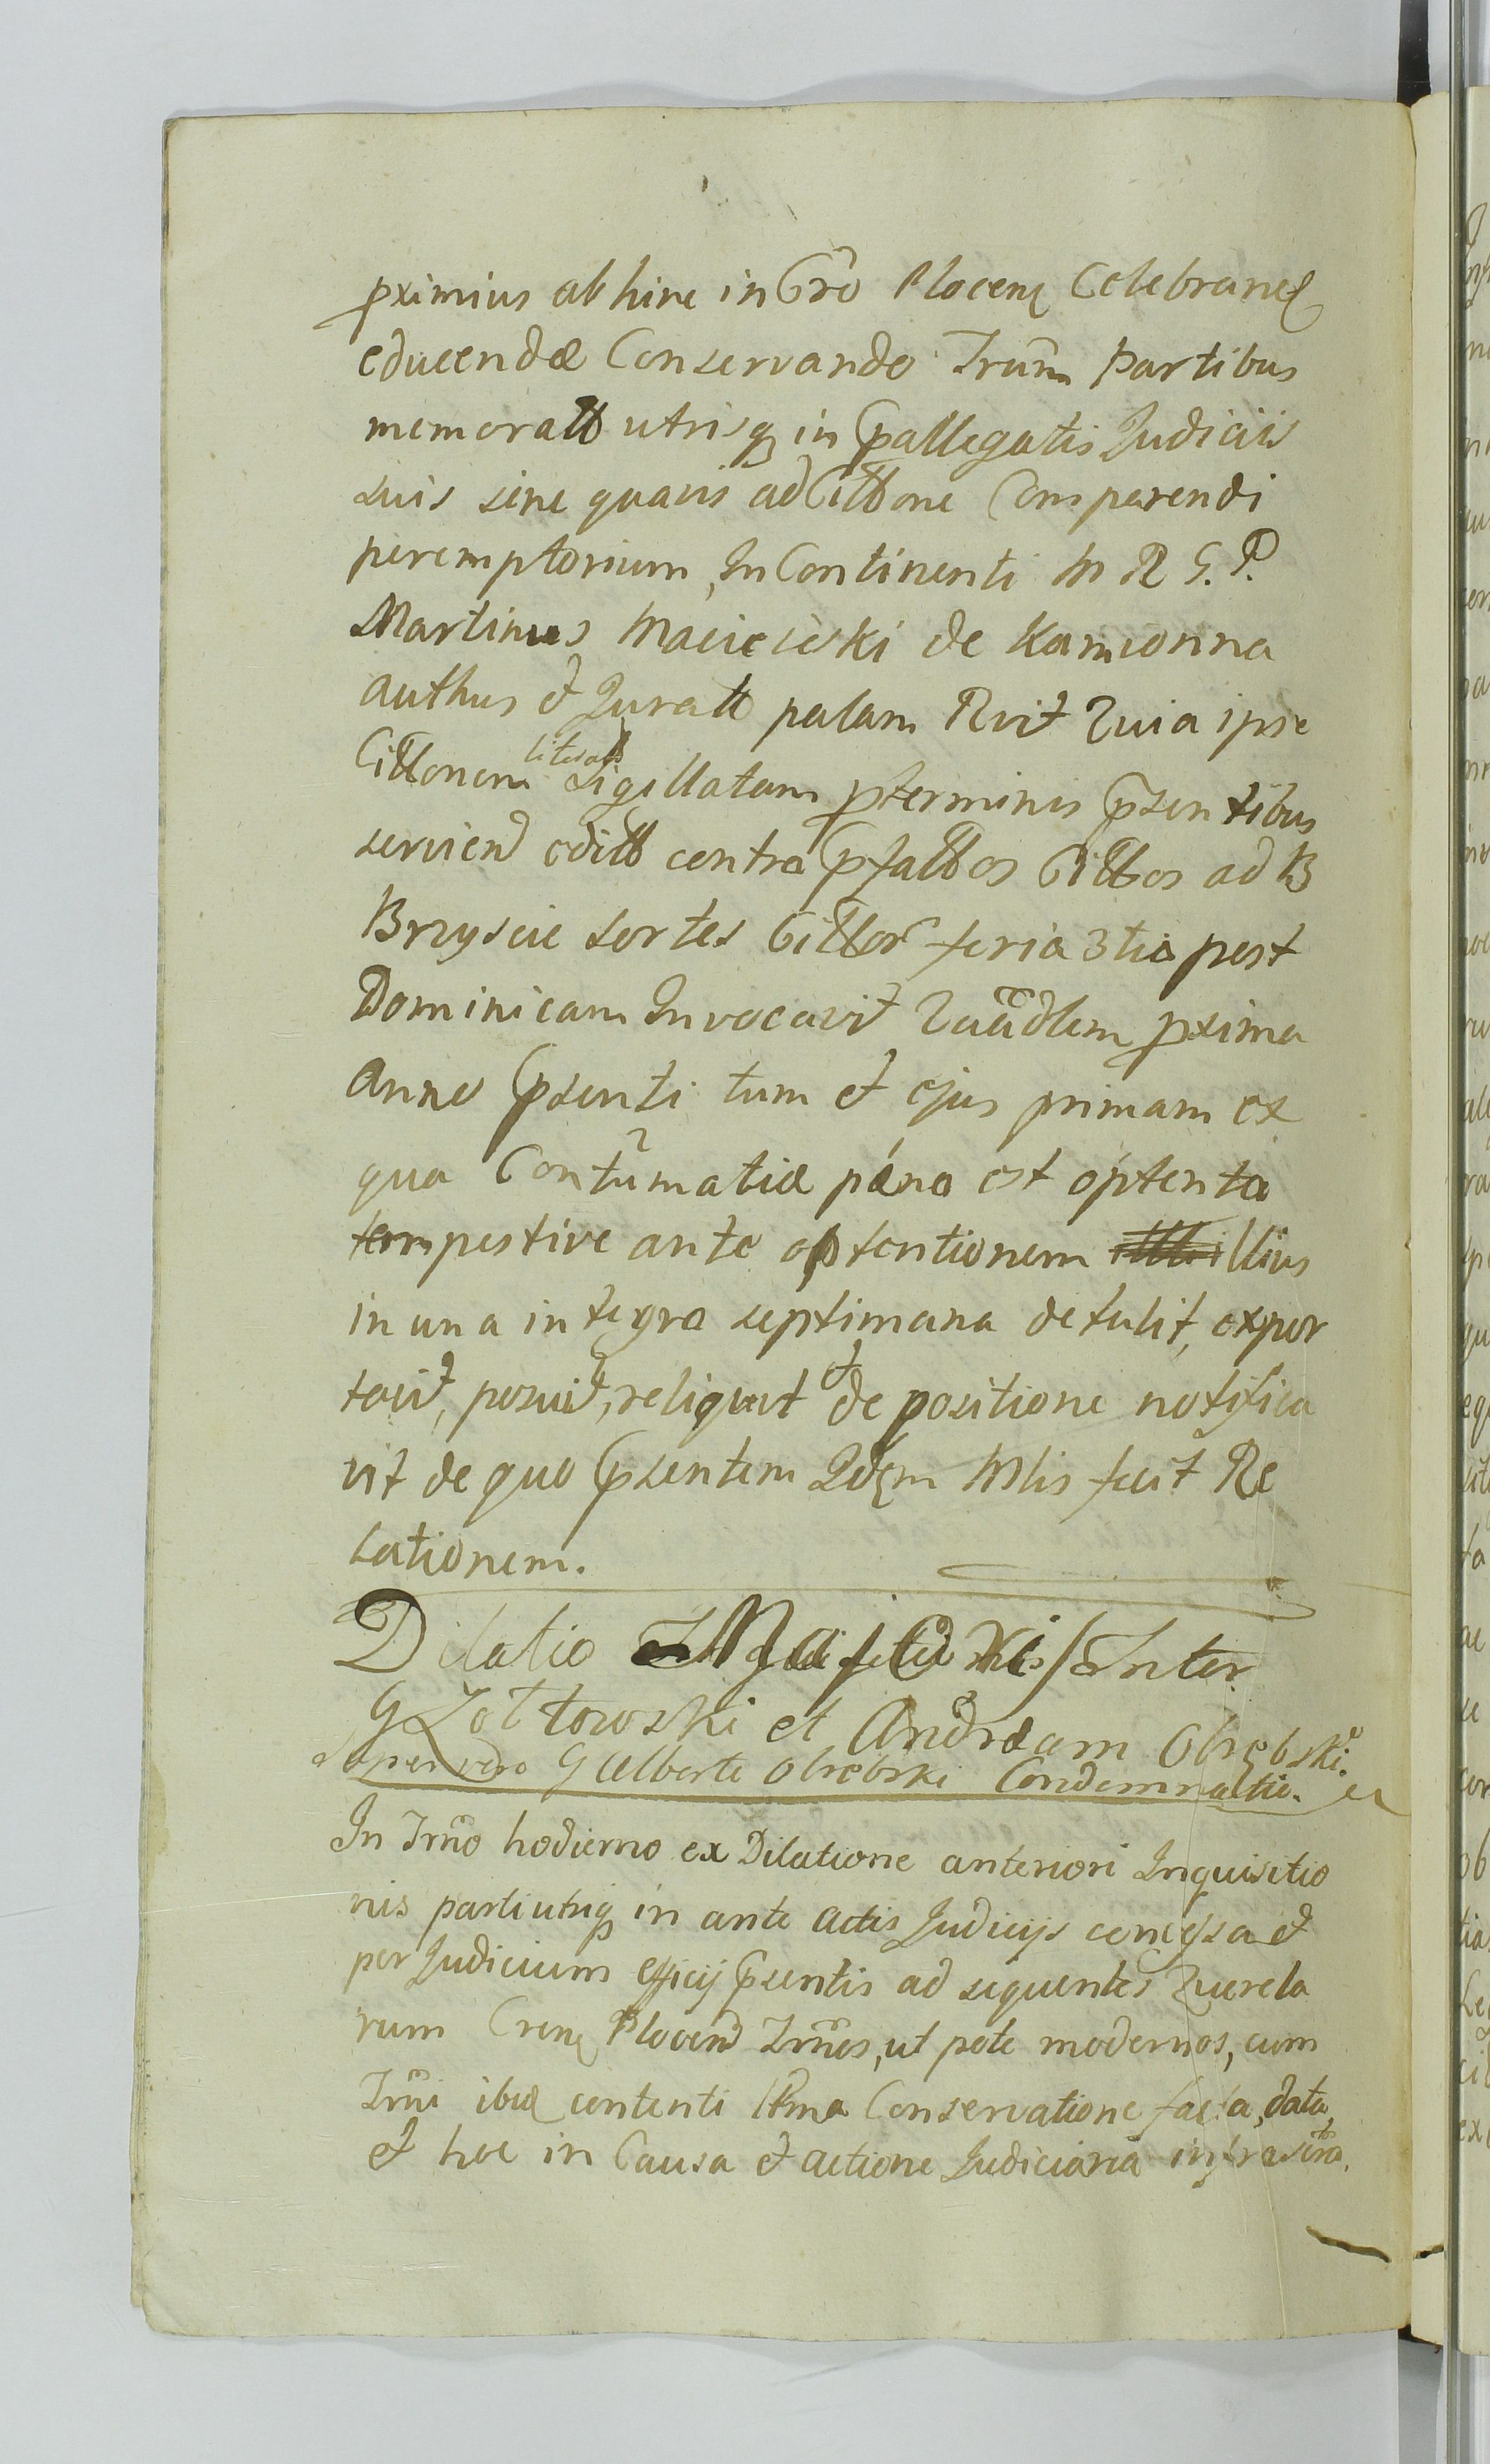 pximius abhinc in Gro Plocen Celebrand
educendæ Conservando Trum Partibus
memoratt utrisq in pallegatis Judiciis
suis sine quavis ad Cittone Comparendi
peremptorium, In Continenti M R G. P.
Martinus Maciciski de Kamionna
authus et Juratt palam Rvit Quia ipse
Cittonem literatt Sigillatam pterminis psentibus
serviend editt contra pfattos Cittos ad B
Brzyscie sortes Cittor feria 3tia post
Dominicam Invocavit Quadlem pxima
anno psenti tum et ejus primam ex
qua Contumatiæ pæna est optenta
tempestive ante optentionem illius
in una integra septimana detulit, expor
tavit, posuit, reliquit et de positione notifica
vit de quo psentem Idem Mlis fecit Re
lationem.
Dilatio Inter
G Zołtowski et Andream Obrębski.
super vero G Alberto Obrebski Condemnatio.
In Trno hodierno ex Dilatione anteriori Inquisitio
nis parti utriq in ante actis Judicijs concessa et
per Judicium officij psentis ad sequentes Querela
rum Cren Plocen Trnos, ut pote modernos, cum
Trni ibid contenti Conservatione facta, data,
et hoc in Causa et actione Judiciaria infrascra.